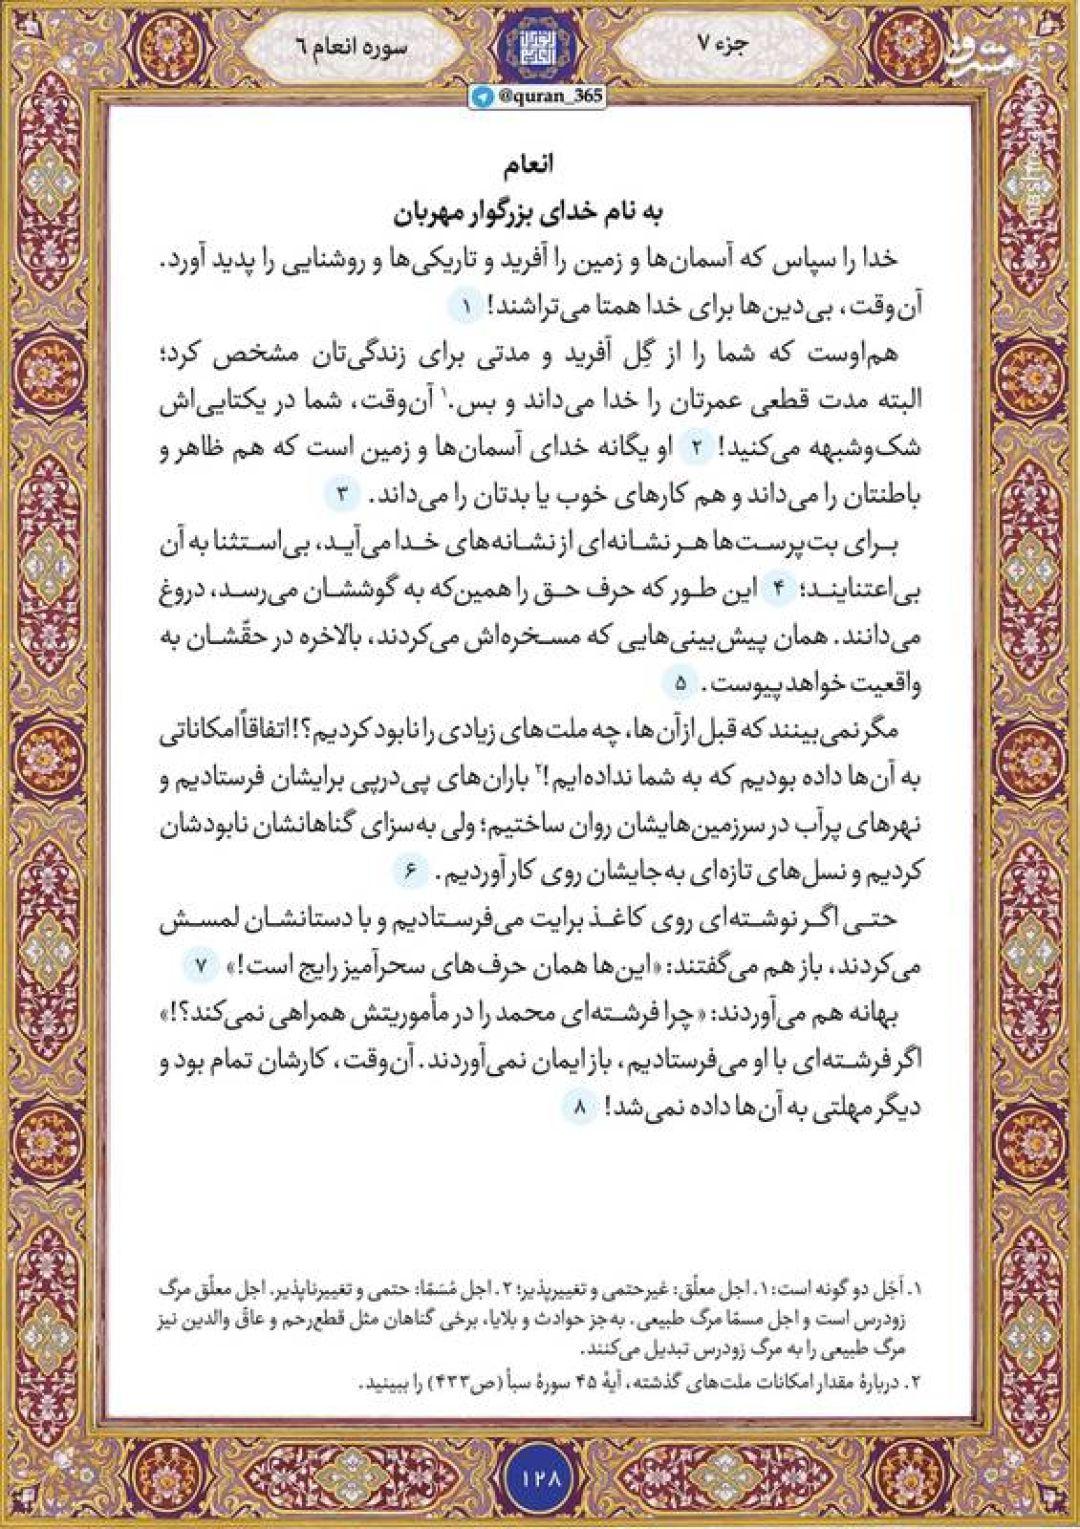 جزء ۷
سوره انعام ۶
@quran_365
مشرق
انعام
به نام خدای بزرگوار مهربان
خدا را سپاس که آسمان‌ها و زمین را آفرید و تاریکی‌ها و روشنایی را پدید آورد.
آن‌وقت، بی‌دین‌ها برای خدا همتا می‌تراشند! ۱
هم‌اوست که شما را از گِل آفرید و مدتی برای زندگی‌تان مشخص کرد؛
البته مدت قطعی عمرتان را خدا می‌داند و بس.۱ آن‌وقت، شما در یکتایی‌اش
شک‌وشبهه می‌کنید! ۲ او یگانه خدای آسمان‌ها و زمین است که هم ظاهر و
باطنتان را می‌داند و هم کارهای خوب یا بدتان را می‌داند. ۳
برای بت‌پرست‌ها هر نشانه‌ای از نشانه‌های خدا می‌آید، بی‌استثنا به آن
بی‌اعتنایند؛ ۴ این طور که حرف حق را همین‌که به گوششان می‌رسد، دروغ
می‌دانند. همان پیش‌بینی‌هایی که مسخره‌اش می‌کردند، بالاخره در حقّشان به
واقعیت خواهد پیوست. ۵
مگر نمی‌بینند که قبل از آن‌ها، چه ملت‌های زیادی را نابود کردیم؟! اتفاقاً امکاناتی
به آن‌ها داده بودیم که به شما نداده‌ایم!۲ باران‌های پی‌درپی برایشان فرستادیم و
نهرهای پرآب در سرزمین‌هایشان روان ساختیم؛ ولی به‌سزای گناهانشان نابودشان
کردیم و نسل‌های تازه‌ای به‌جایشان روی کار آوردیم. ۶
حتی اگر نوشته‌ای روی کاغذ برایت می‌فرستادیم و با دستانشان لمسش
می‌کردند، باز هم می‌گفتند: «این‌ها همان حرف‌های سحرآمیز رایج است!» ۷
بهانه هم می‌آوردند: «چرا فرشته‌ای محمد را در مأموریتش همراهی نمی‌کند؟!»
اگر فرشته‌ای با او می‌فرستادیم، باز ایمان نمی‌آوردند. آن‌وقت، کارشان تمام بود و
دیگر مهلتی به آن‌ها داده نمی‌شد! ۸
۱. اَجَل دو گونه است: ۱. اجل معلّق: غیرحتمی و تغییرپذیر؛ ۲. اجل مُسَمّا: حتمی و تغییرناپذیر. اجل معلّق مرگ
زودرس است و اجل مسمّا مرگ طبیعی. به‌جز حوادث و بلایا، برخی گناهان مثل قطع‌رحم و عاقّ والدین نیز
مرگ طبیعی را به مرگ زودرس تبدیل می‌کنند.
۲. دربارهٔ مقدار امکانات ملت‌های گذشته، آیهٔ ۴۵ سورهٔ سبأ (ص۴۳۳) را ببینید.
۱۲۸